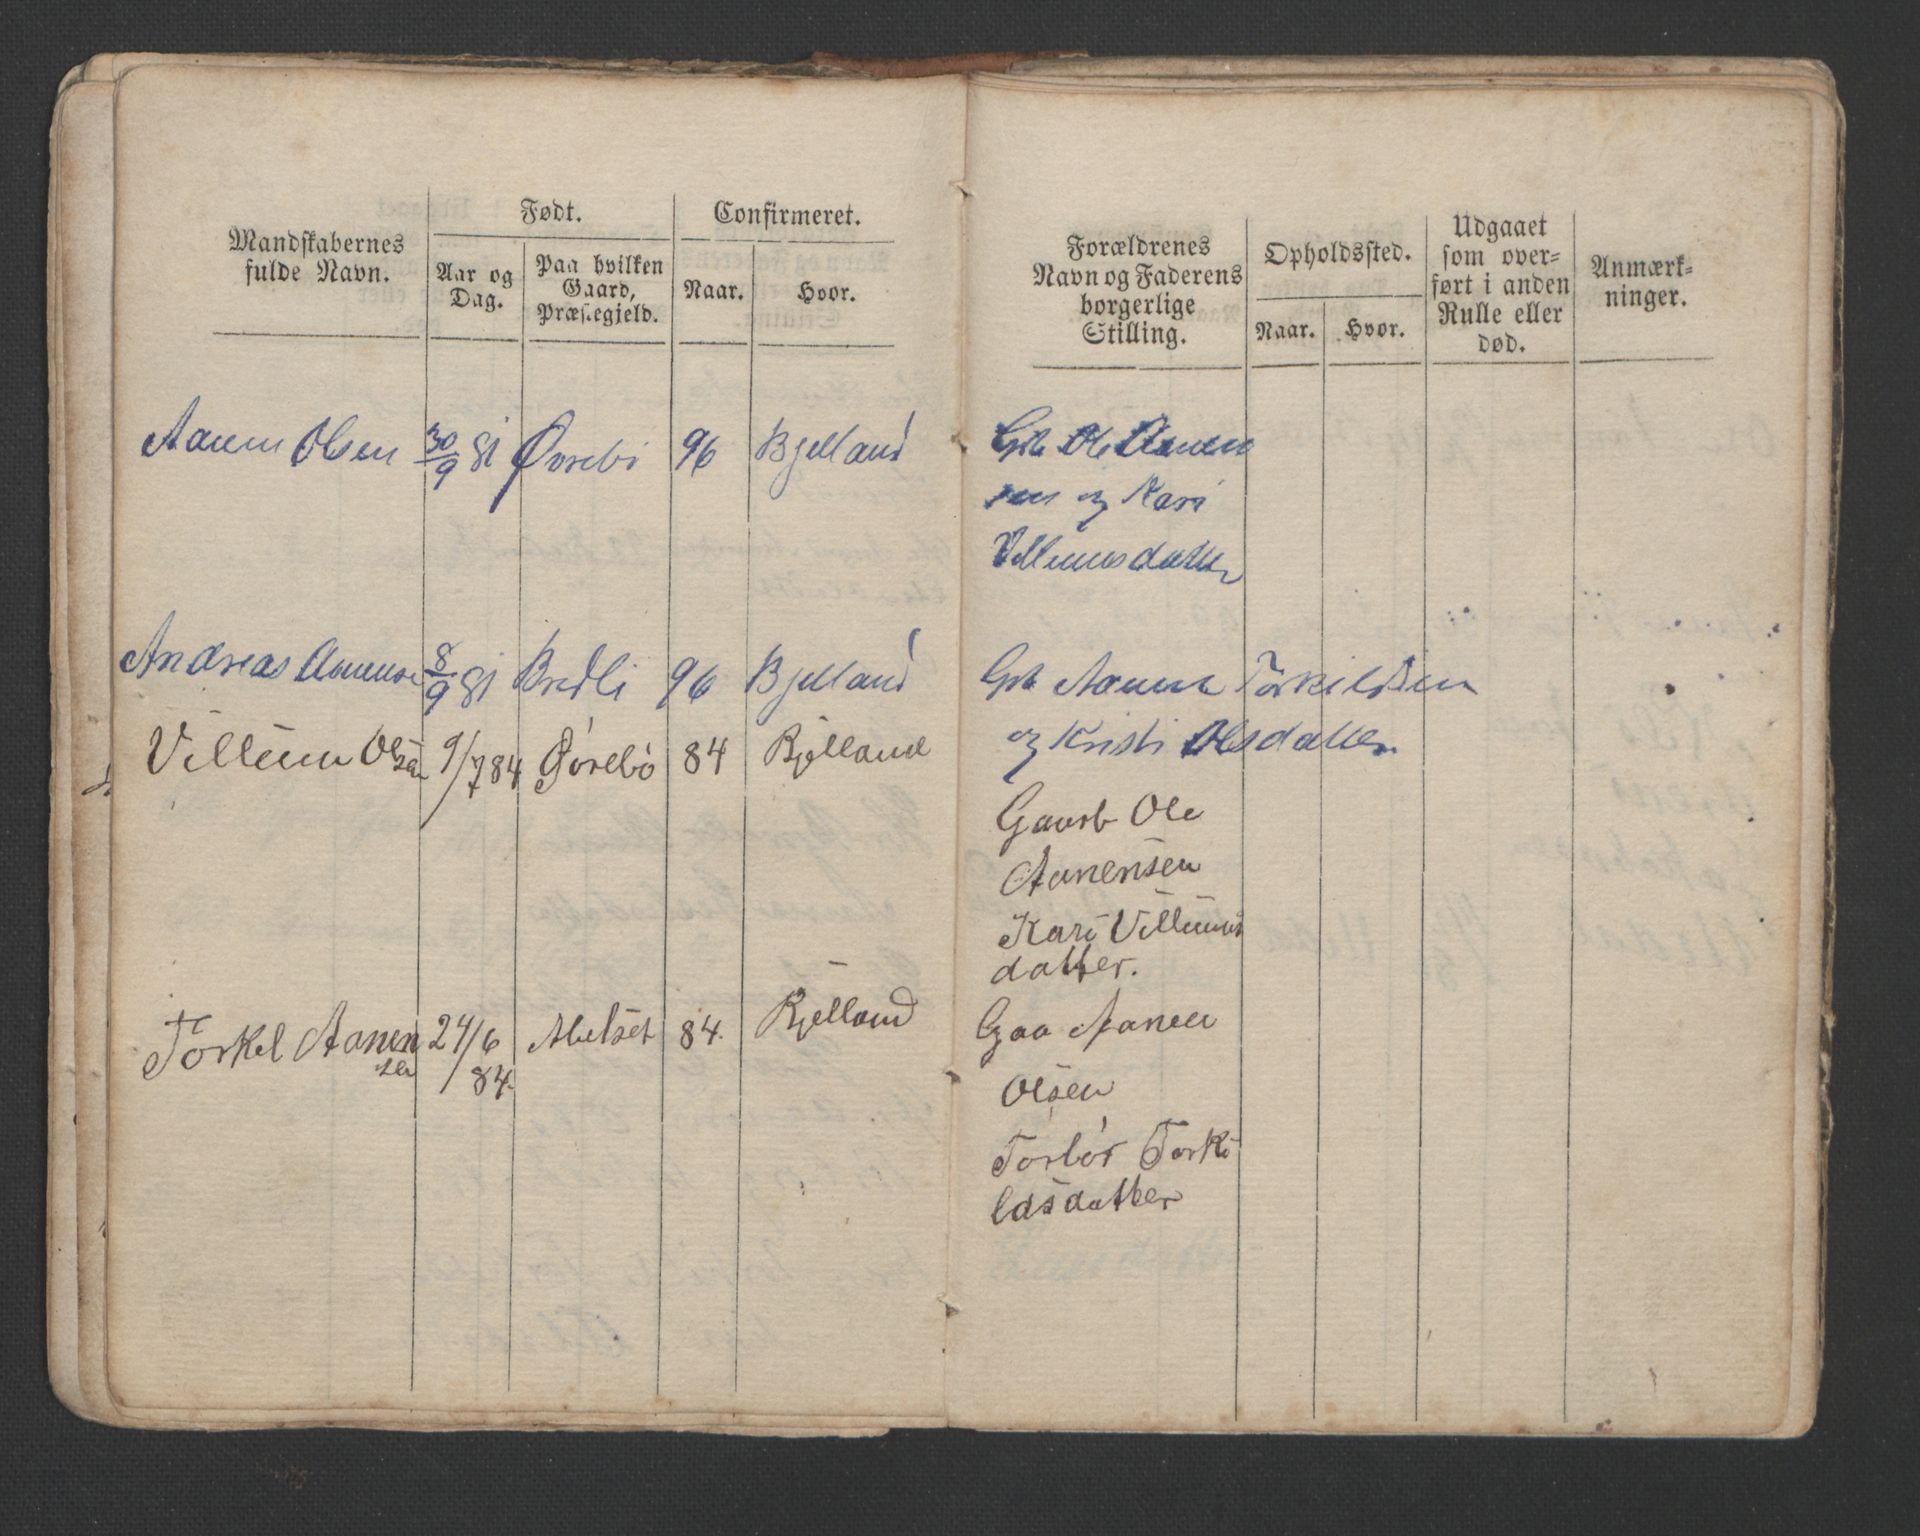 Mandskabernes fulde Navn.
Født.
Aar og Dag.
Paa hvilken Gaard, Præstegjeld.
Confirmeret.
Naar.
Hvor.
Aanen Olsen 30/9 81 Øvrebö 96 Bjelland
Andreas Aanense 8/9 81 Bredli 96 Bjelland
Villum Olsen 9/7 84 Øvrebö 84 Bjelland
Torkel Aanensen 24/6 84. 84. Bjelland
Forældrenes Navn og Faderens borgerlige Stilling.
Opholdssted.
Naar.
Hvor.
Udgaaet som overført i anden Rulle eller død.
Anmærkninger.
Grb Ole Aanen
sen og Kari
Villumsdatter
Grb Aanen Torkildsen
og Kristi Olsdatter
Gaarb Ole
Aanensen
Kari Villums
datter.
Gaa Aanen
Olsen
Torbör Torki
ldsdatter